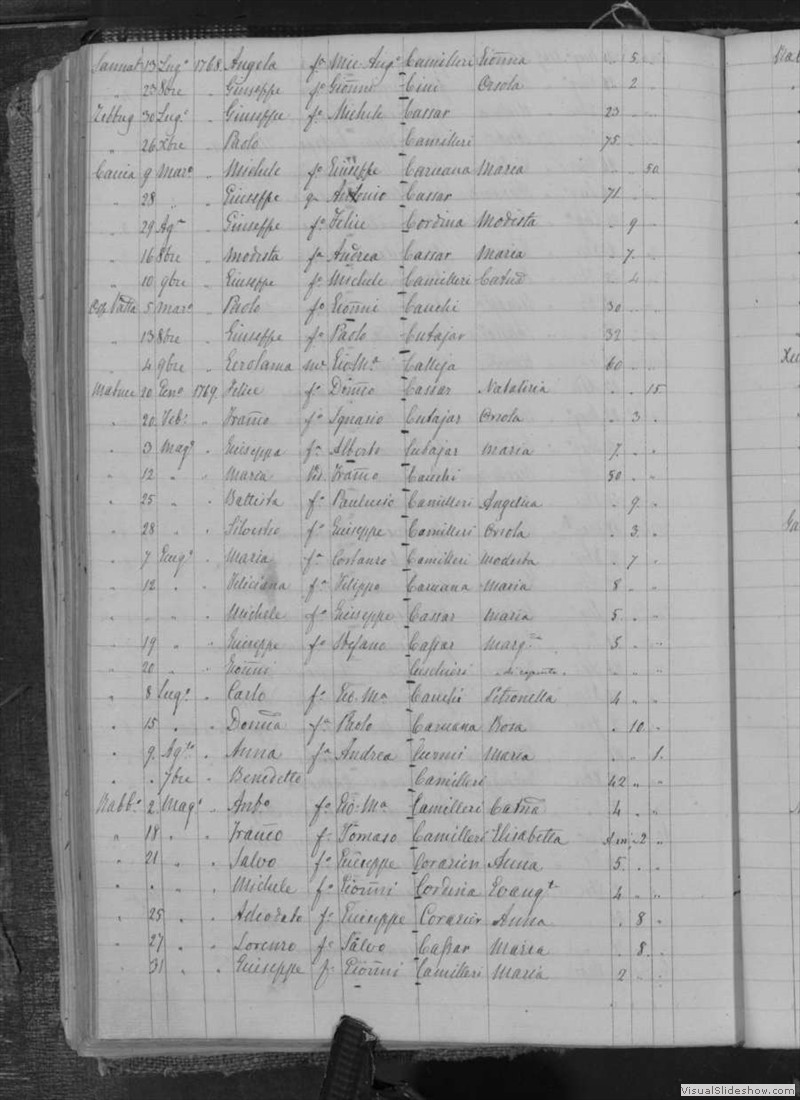 Sannat 13 Lug.o 1768 Angela fa Mic. Ang.o Camilleri Gionna . 5 .
" 23 8bre " Giuseppe fo Gionni Cini Orsola . 2 .
Zebbug 30 Lug.o " Giuseppe fo Michele Cassar 23 . .
" 26 Xbre " Paolo Camilleri 75 . .
Caccia 9 Marzo " Michele fo Giuseppe Caruana Maria . . 50
" 28 " " Giuseppe qm Antonio Cassar 71 . .
" 29 Agto " Giuseppe fo Felice Cordina Modesta . 9 .
" 16 8bre " Modesta fa Andrea Cassar Maria . 7 .
" 10 9bre " Giuseppe fo Michele Camilleri . 4 .
5 Marzo " Paolo fo Gionni Cauchi 30 . .
" 13 8bre " Giuseppe fo Paolo Cutajar 32 . .
" 4 9bre " Gerolama Gio Ma Calleja 60 . .
10 Geno 1769 Felice fo Cassar . . 15
" 20 Feb: " Franco fo Ignazio Cutajar Orsola . 3 .
" 3 Mago " Giuseppa fa Alberto Cutajar Maria 7 . .
" 12 " " Maria Franco Cauchi 50 . .
" 25 " " Battista fo Camilleri Angelica . 9 .
" 28 " " Silvestro fo Giuseppe Camilleri Orsola . 3 .
" 7 Giugo " Maria fa Costanzo Camilleri Modesta . 7 "
" 12 " " Feliciana fa Filippo Caruana Maria 8 " "
" " " " Michele fo Giuseppe Cassar Maria 5 " "
" 19 " " Giuseppe fo Stefano Cassar Marg.ta 5 . "
" 20 " " Gionni " " "
" 8 Lugo " Carlo fo Gio. Ma Cauchi Petronella 4 " "
" 15 " " fa Paolo Caruana Rosa . 10 .
" 9 Agto " Anna fa Andrea Maria . " 1.
" . 7bre " Benedetto Camilleri 42 " "
Rabbo 2 Mago " Anto fo Gio. Ma Camilleri 4 . "
" 18 " " Franco fo Tomaso Camilleri Elisabetta . 2 "
" 21 " " Salvo fo Giuseppe Anna 5 . "
" " " " Michele fo Gionni Cordina Evang.ta 4 " "
" 25 " " Adeodato fo Giuseppe Anna . 8 "
" 27 " " Lorenzo fo Salvo Cassar Maria . 8 .
" 31 " " Giuseppe fo Gionni Camilleri Maria 2 " "
VisualSlideshow.com